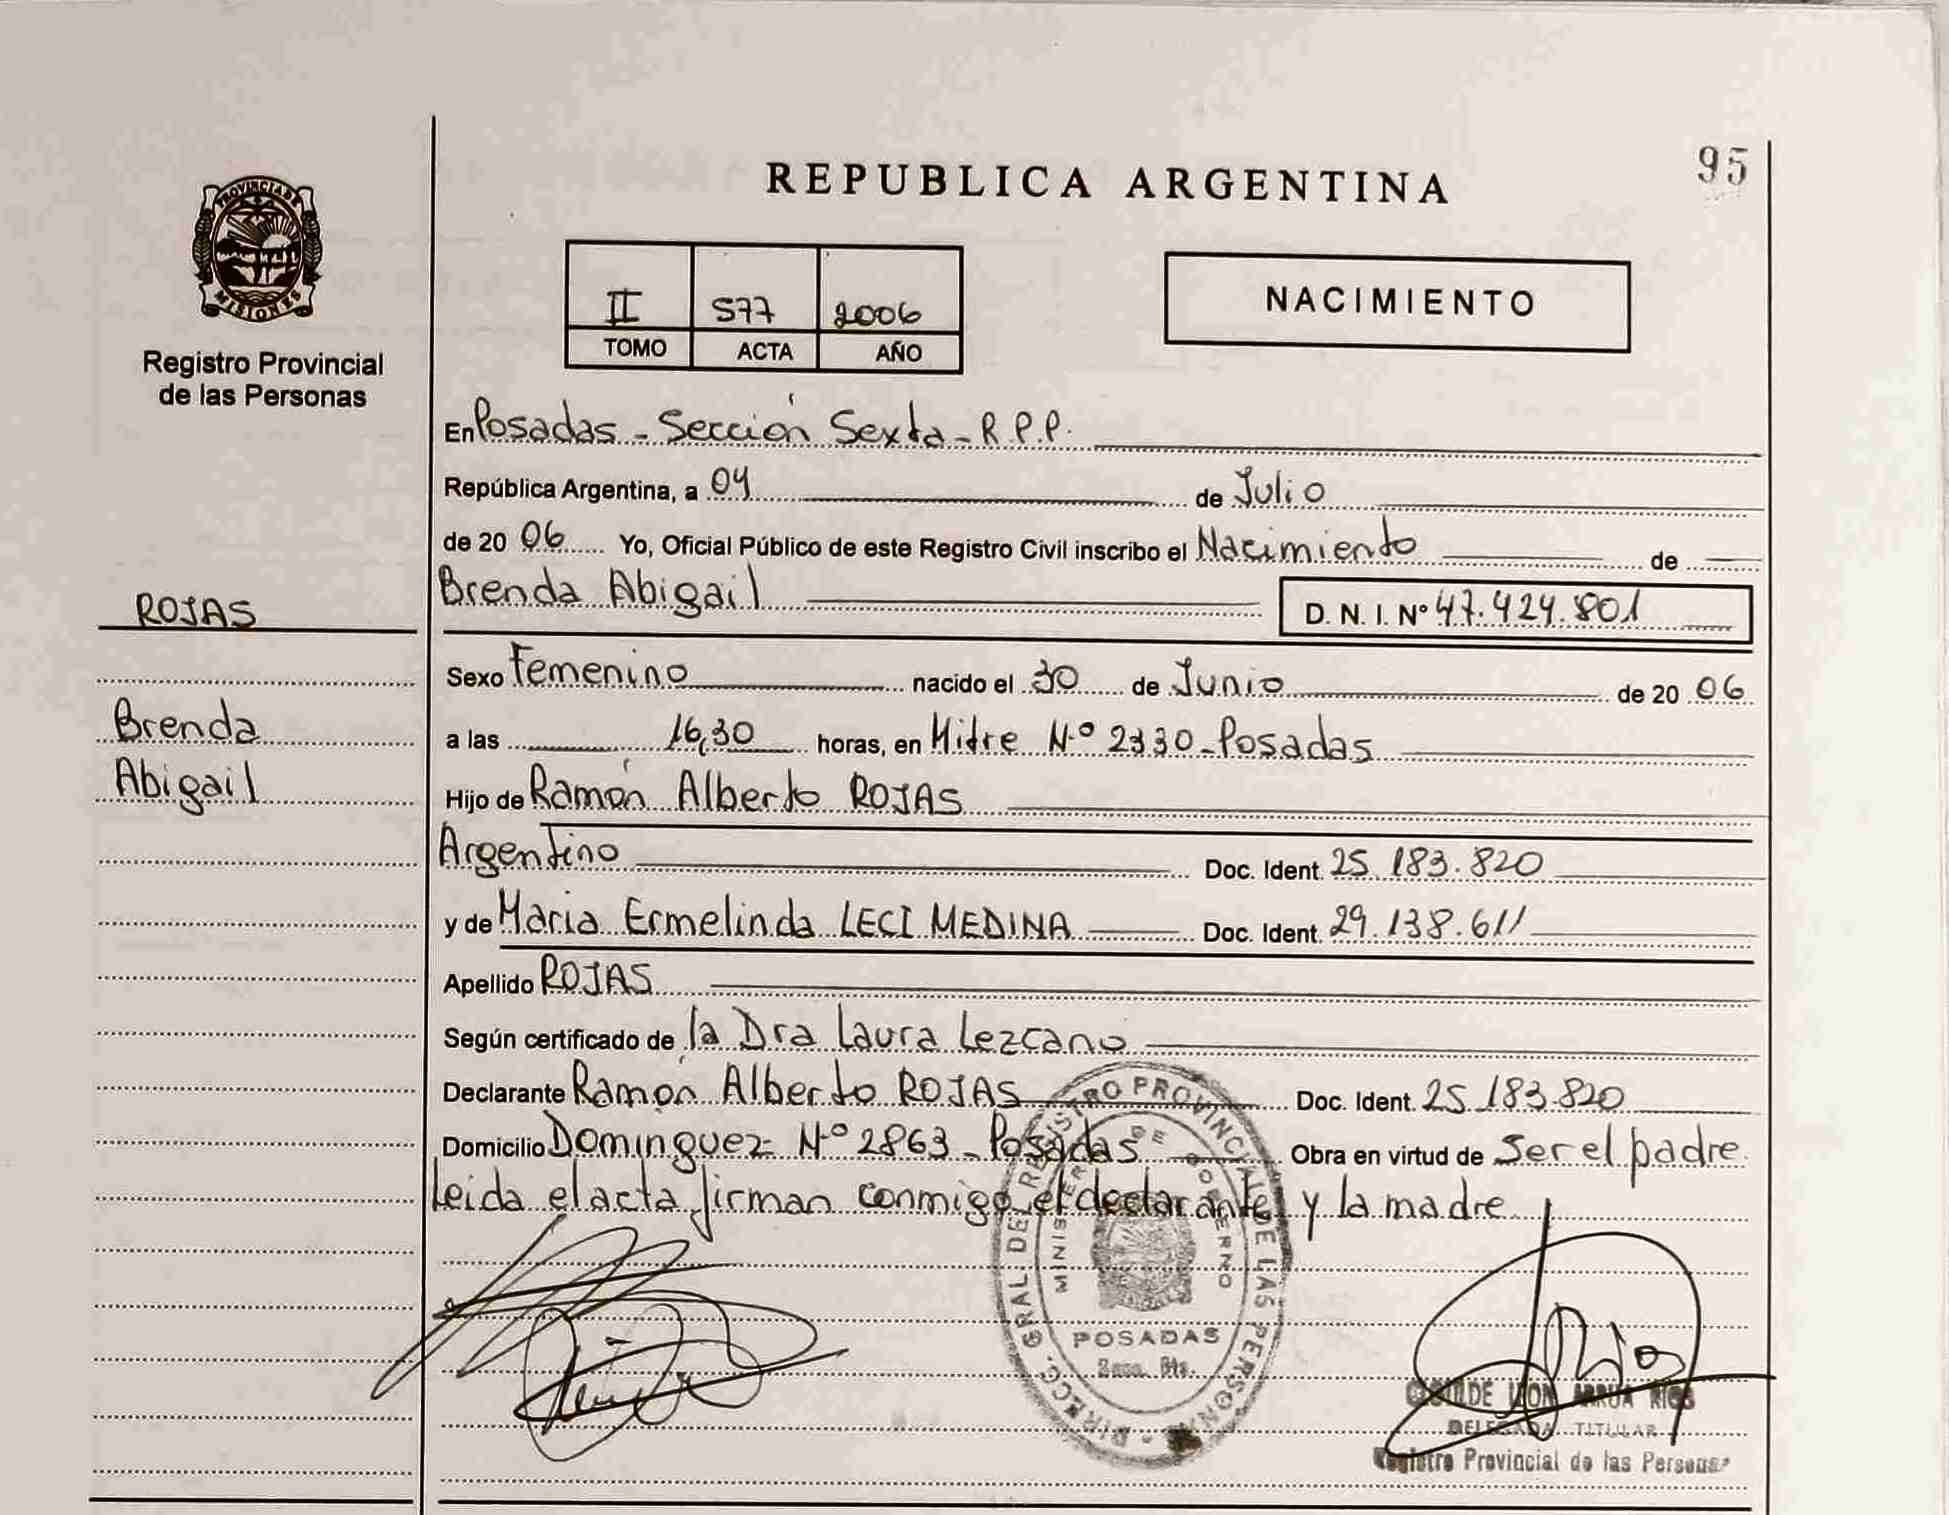 95
REPUBLICA ARGENTINA
PROVINCIA DE
MISIONES
Registro Provincial
de las Personas
II 577 2006
TOMO ACTA AÑO
NACIMIENTO
En Posadas - Sección Sexta - R.P.P.
República Argentina, a 04 de Julio
de 20 06 Yo, Oficial Público de este Registro Civil inscribo el Nacimiento de
Brenda Abigail D. N. I. Nº 47.424.801
ROJAS
Sexo Femenino nacido el 30 de Junio de 20 06
Brenda
a las 16,30 horas, en Mitre Nº 2330 - Posadas
Abigail
Hijo de Ramón Alberto ROJAS
Argentino Doc. Ident. 25.183.820
y de Maria Ermelinda LECI MEDINA Doc. Ident. 29.138.611
Apellido ROJAS
Según certificado de la Dra Laura Lezcano
Declarante Ramón Alberto ROJAS Doc. Ident. 25.183.820
Domicilio Dominguez Nº 2863 - Posadas Obra en virtud de Ser el padre
Leida el acta firman conmigo el declarante y la madre
DIRECC. GRAL. DE REGISTRO PROVINCIAL DE LAS PERSONAS
MINISTERIO DE GOBIERNO
POSADAS
ARRUA RIOS
DELEGADA TITULAR
Registro Provincial de las Personas